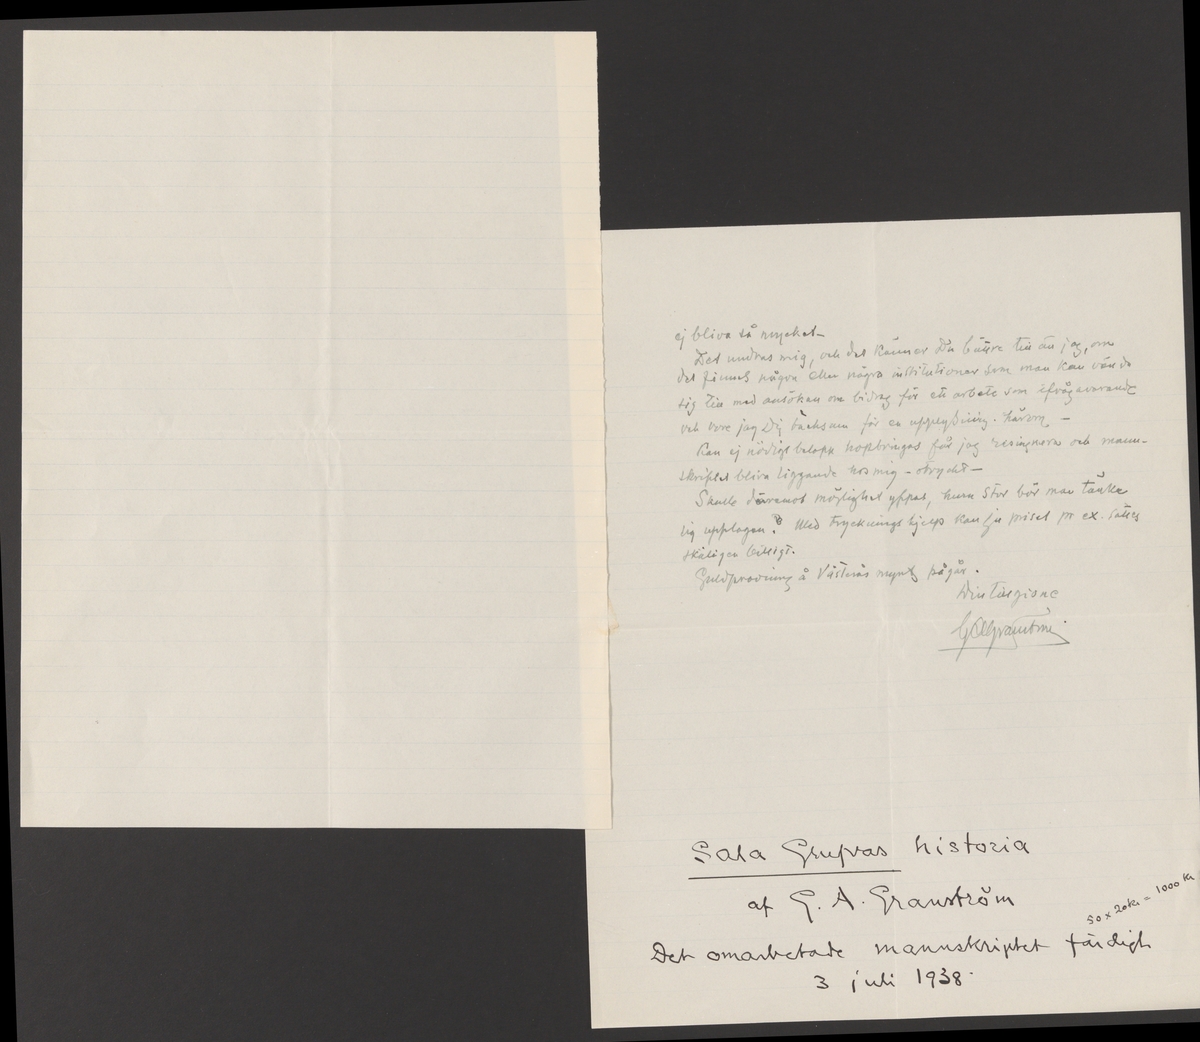 ej bliva så mycket –
Det undras mig, och det känner Du bättre till än jag, om
det finnes någon eller några institutioner som man kan vända
sig till med ansökan om bidrag för ett arbete som ifrågavarande
och vore jag Dig tacksam för en upplysning härom –
Kan ej nödigt belopp hopbringas får jag resignera och mann-
skriptet bliva liggande hos mig – otryckt –
Skulle däremot möjlighet yppas, huru stor bör man tänka
sig upplagan? Med tryckningshjelp kan ju priset pr ex. sättas
skäligen billigt.
Guldprovning å Västerås mynt pågår.
Din tillgifne
G A Granström
Sala Grufvas historia
af G. A. Granström
50 x 20 kr = 1000 kr
Det omarbetade mannskriptet färdigt
3 juli 1938.